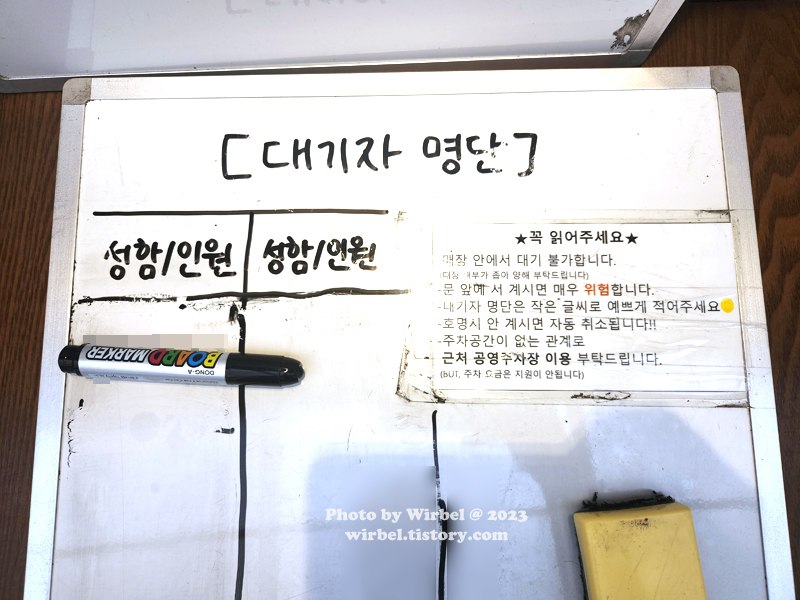 [대기자 명단]
성함/인원 성함/인원
★꼭 읽어주세요★
매장 안에서 대기 불가합니다.
(매장 내부가 좁아 양해 부탁드립니다)
-문 앞에 서 계시면 매우 위험합니다.
-대기자 명단은 작은 글씨로 예쁘게 적어주세요
-호명시 안 계시면 자동 취소됩니다!!
-주차공간이 없는 관계로
근처 공영주차장 이용 부탁드립니다.
(BUT, 주차 요금은 지원이 안됩니다)
DONG-A
BOARD MARKER
Photo by Wirbel @ 2023
wirbel.tistory.com